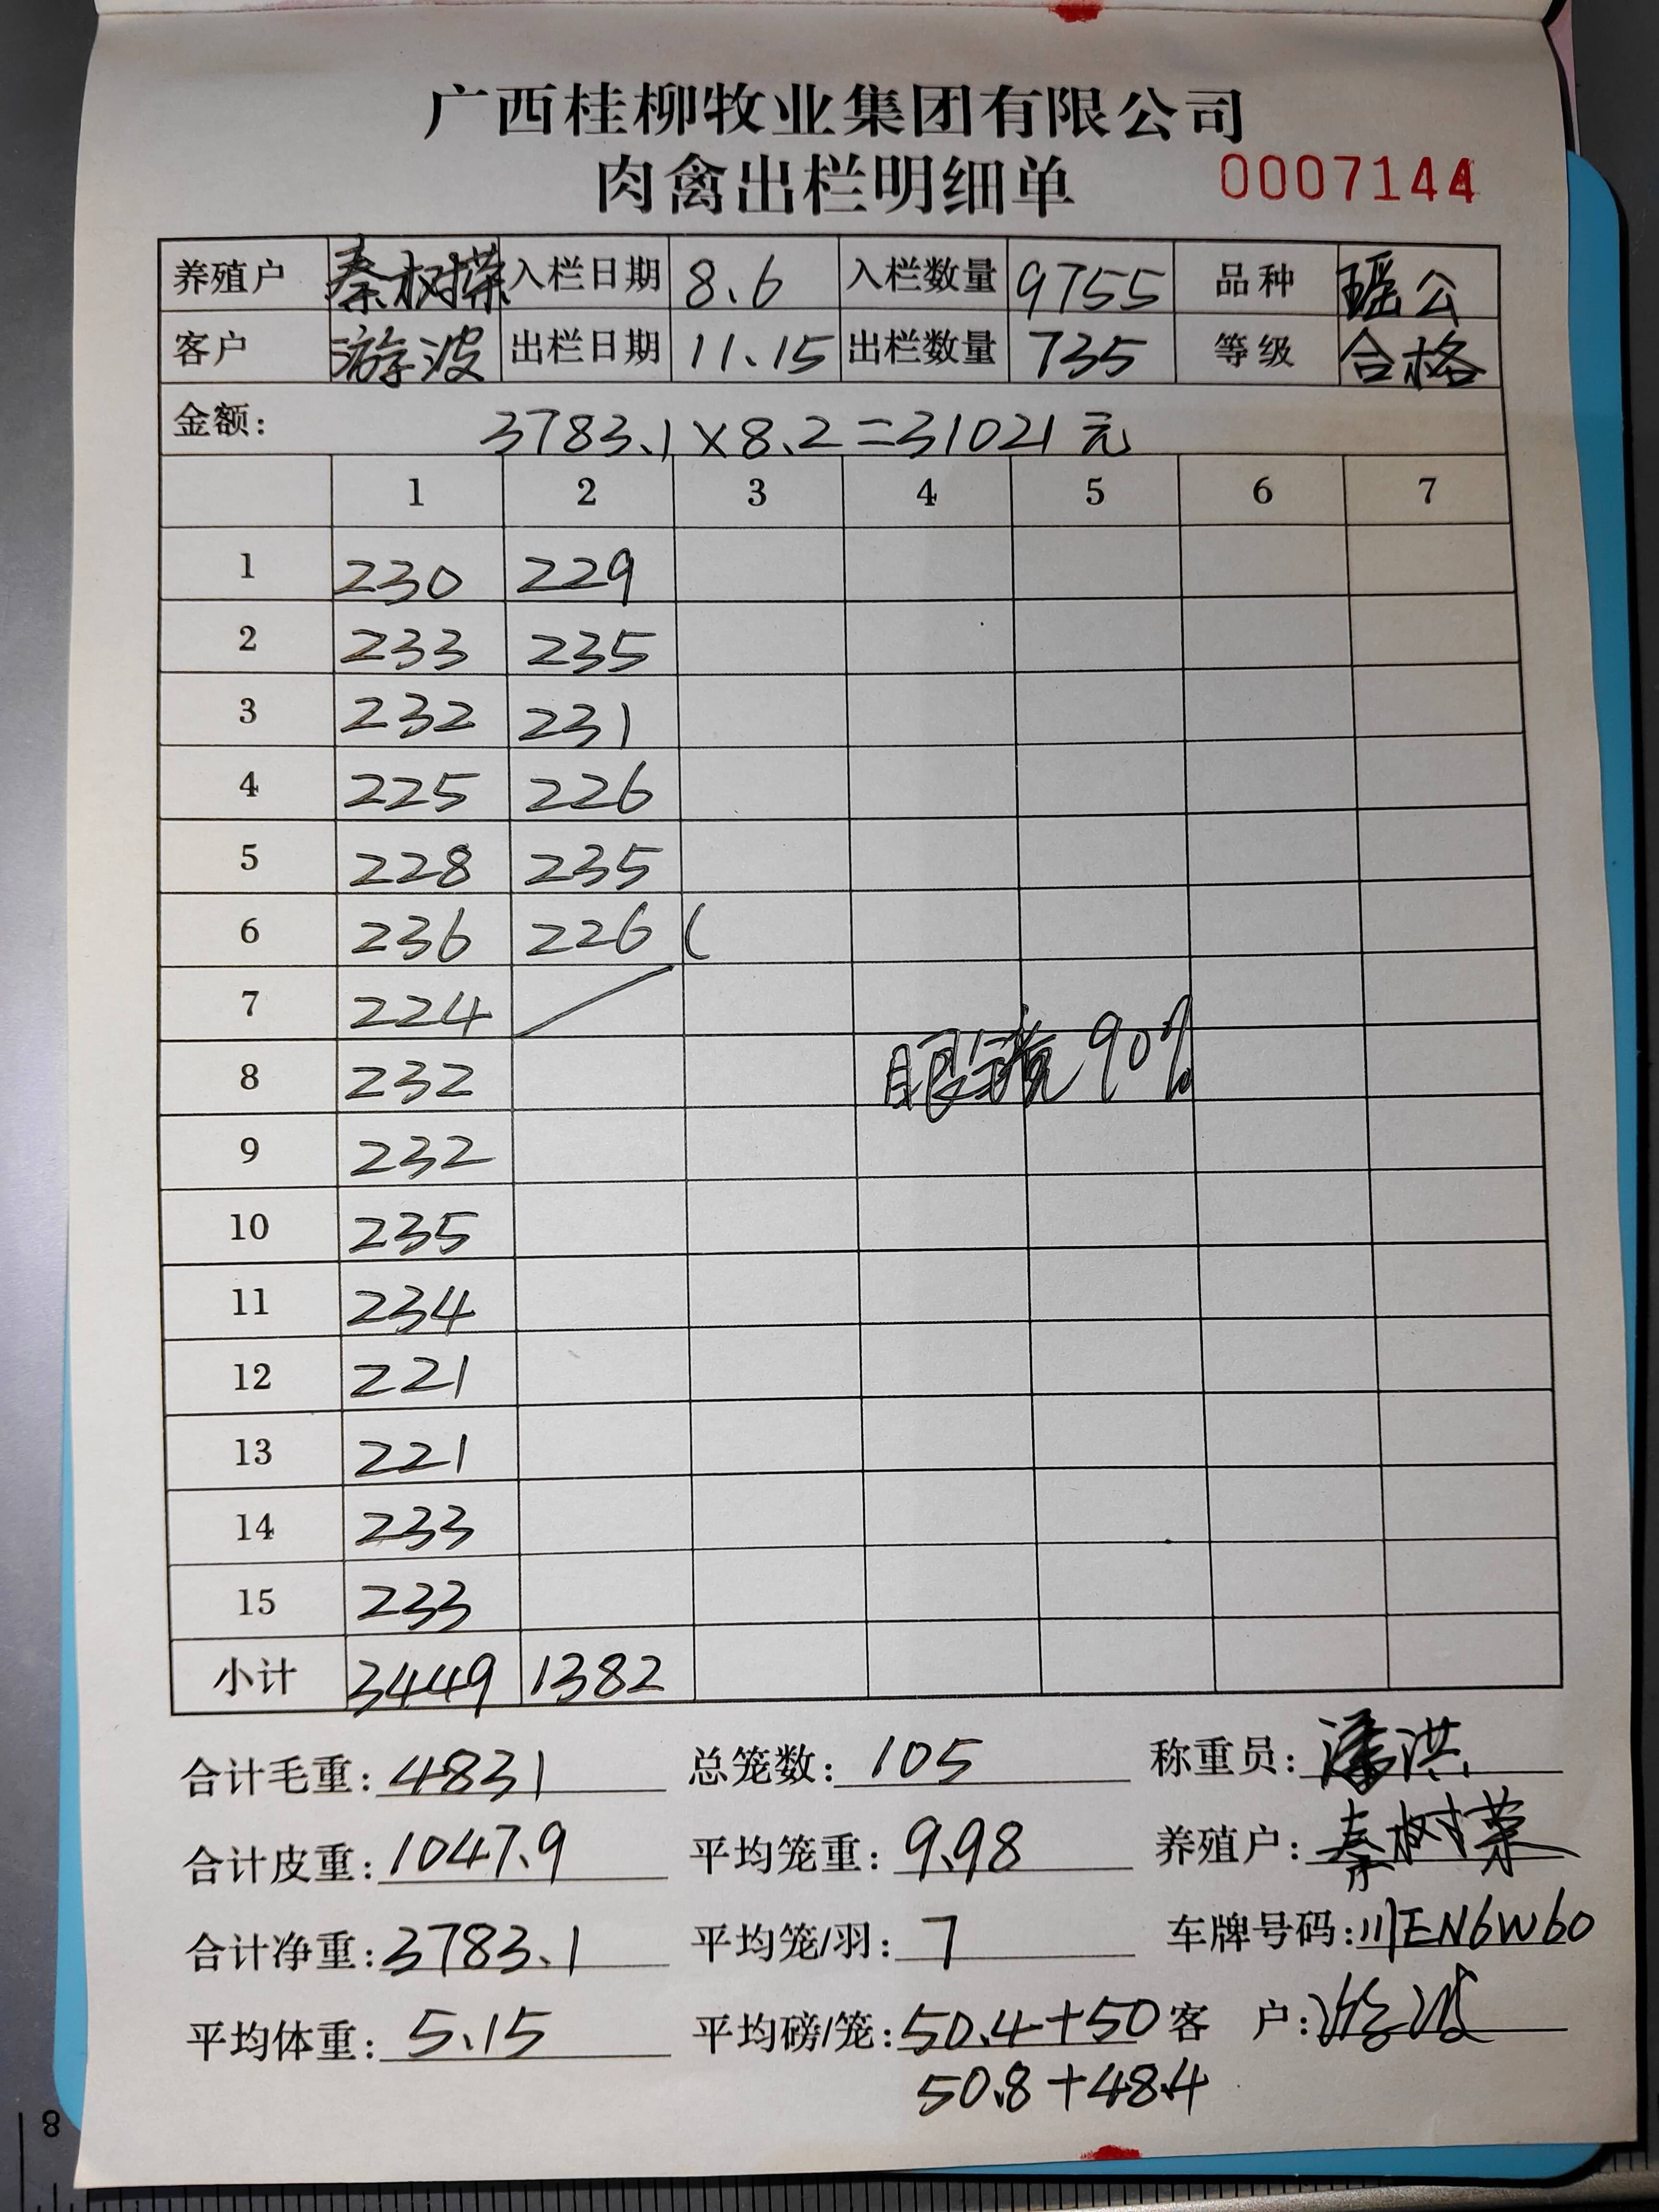 广西桂柳牧业集团有限公司
肉禽出栏明细单 0007144
养殖户 秦树荣 入栏日期 8.6 入栏数量 9755 品种 瑶公
客户 游波 出栏日期 11.15 出栏数量 735 等级 合格
金额: 3783.1×8.2=31021元
1 2 3 4 5 6 7
1 230 229
2 233 235
3 232 231
4 225 226
5 228 235
6 236 226 (
7 224
8 232 眼镜90%
9 232
10 235
11 234
12 221
13 221
14 233
15 233
小计 3449 1382
合计毛重: 4831 总笼数: 105 称重员: 潘洪
合计皮重: 1047.9 平均笼重: 9.98 养殖户: 秦树荣
合计净重: 3783.1 平均笼/羽: 7 车牌号码: 川EN6W60
平均体重: 5.15 平均磅/笼: 50.4+50 客 户: 游波
50.8+48.4
8